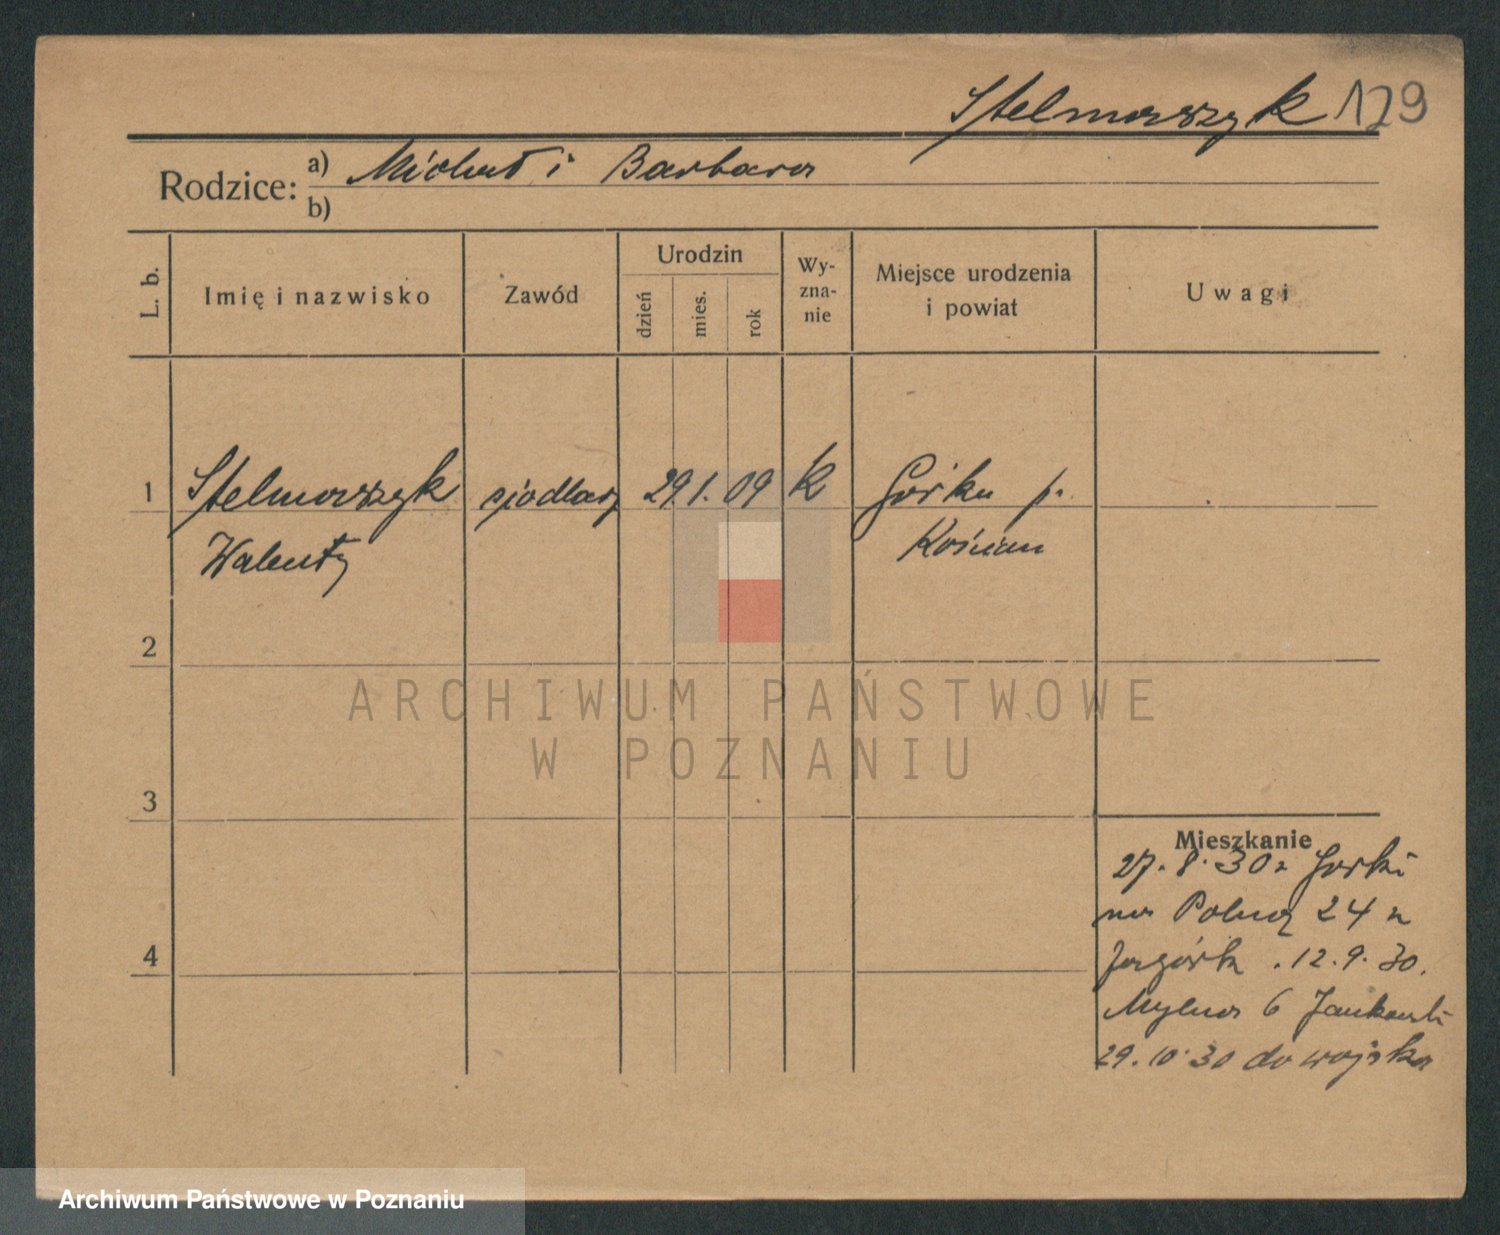 Stelmaszyk 129
Rodzice: a) Michał i Barbara
b)
L. b.
Imię i nazwisko
Zawód
Urodzin
dzień
mies.
rok
Wy-
zna-
nie
Miejsce urodzenia
i powiat
Uwagi
1 Stelmaszyk siodlarz 29. 1. 09 k Górka p.
Walenty Kościan
2
ARCHIWUM PAŃSTWOWE
W POZNANIU
3
Mieszkanie
27. 8. 30 z Górki
na Polną 24 u
4
12. 9. 30.
Mylna 6 Jankowski
29. 10. 30 do wojska
Archiwum Państwowe w Poznaniu